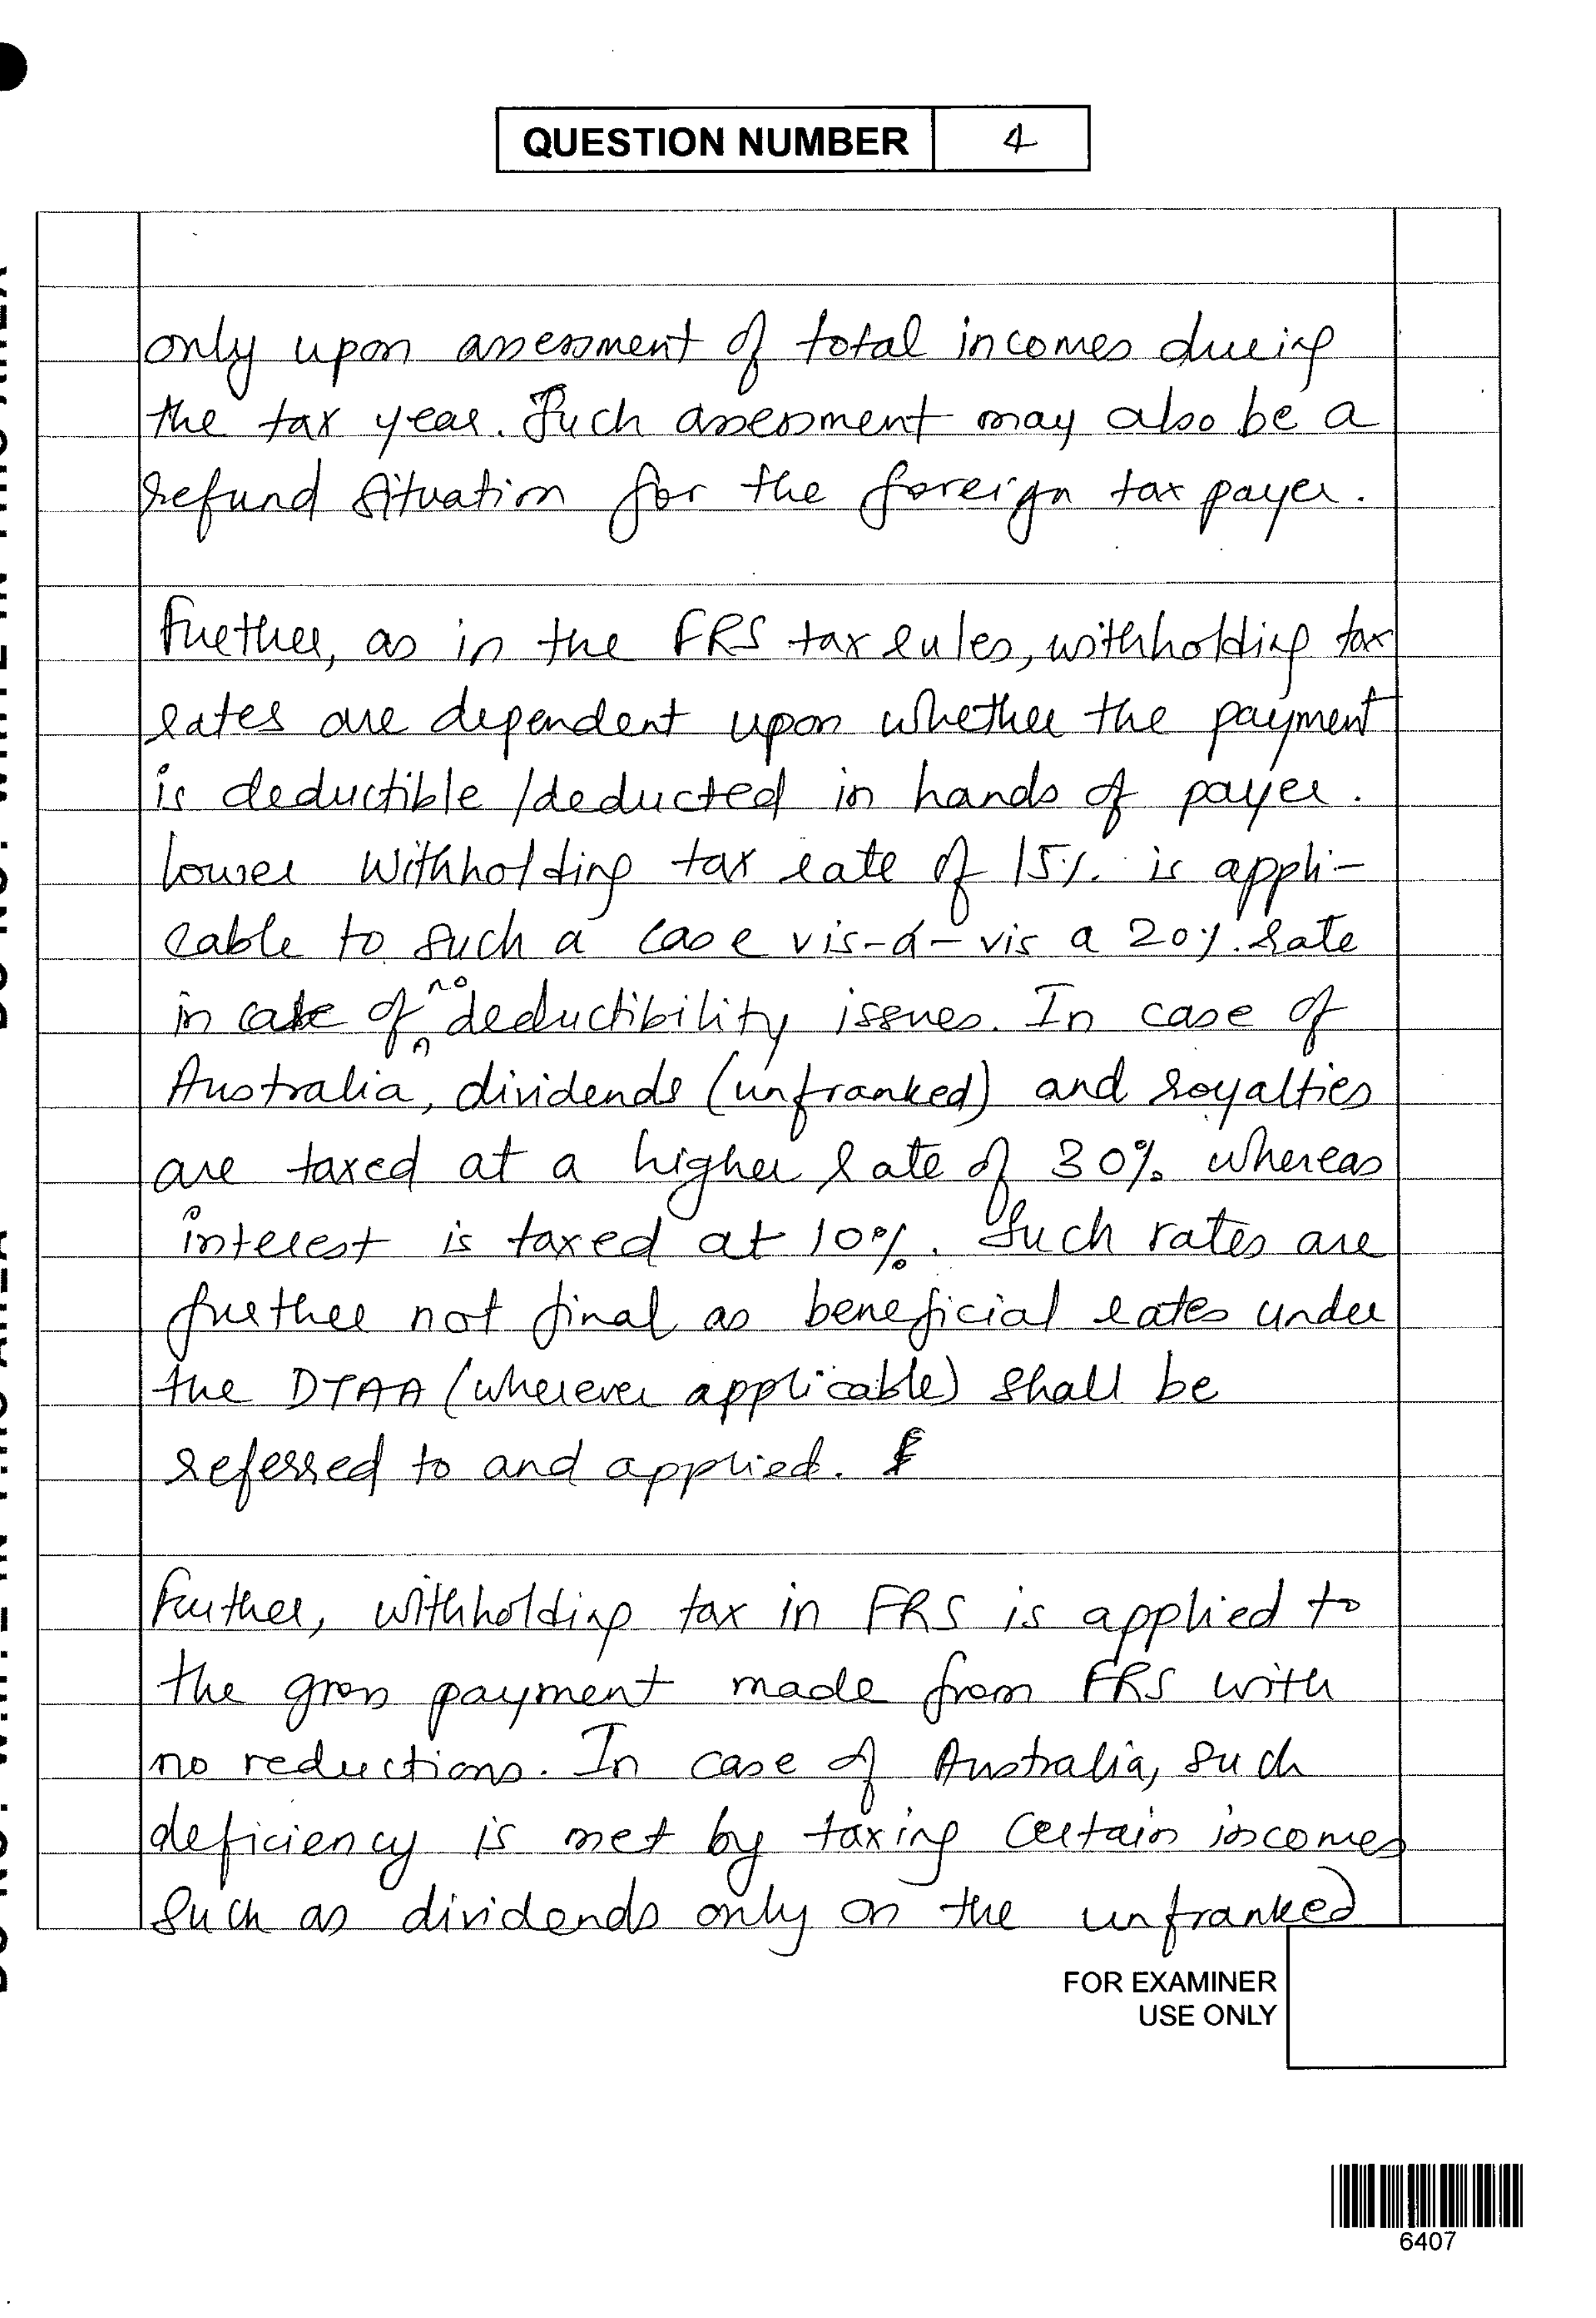 QUESTION NUMBER 4
only upon assessment of total incomes during
the tax year. Such assesment may also be a
refund situation for the foreign tax payer.
Further, as in the FRS tax rules, withholding tax
rates are dependent upon whether the payment
is deductible /deducted in hands of payer.
Lower withholding tax rate of 15%. is appli-
cable to such a case vis-a-vis a 20%. rate
in case of no deductibility issues. In case of
Australia, dividends (unfranked) and royalties
are taxed at a higher rate of 30% whereas
interest is taxed at 10%. Such rates are
further not final as beneficial rates under
the DTAA (wherever applicable) shall be
referred to and applied.
Further, withholding tax in FRS is applied to
the gross payment made from FRS with
no reductions. In case of Australia, such
deficiency is met by taxing certain incomes
such as dividends only on the unfranked
FOR EXAMINER
USE ONLY
6407